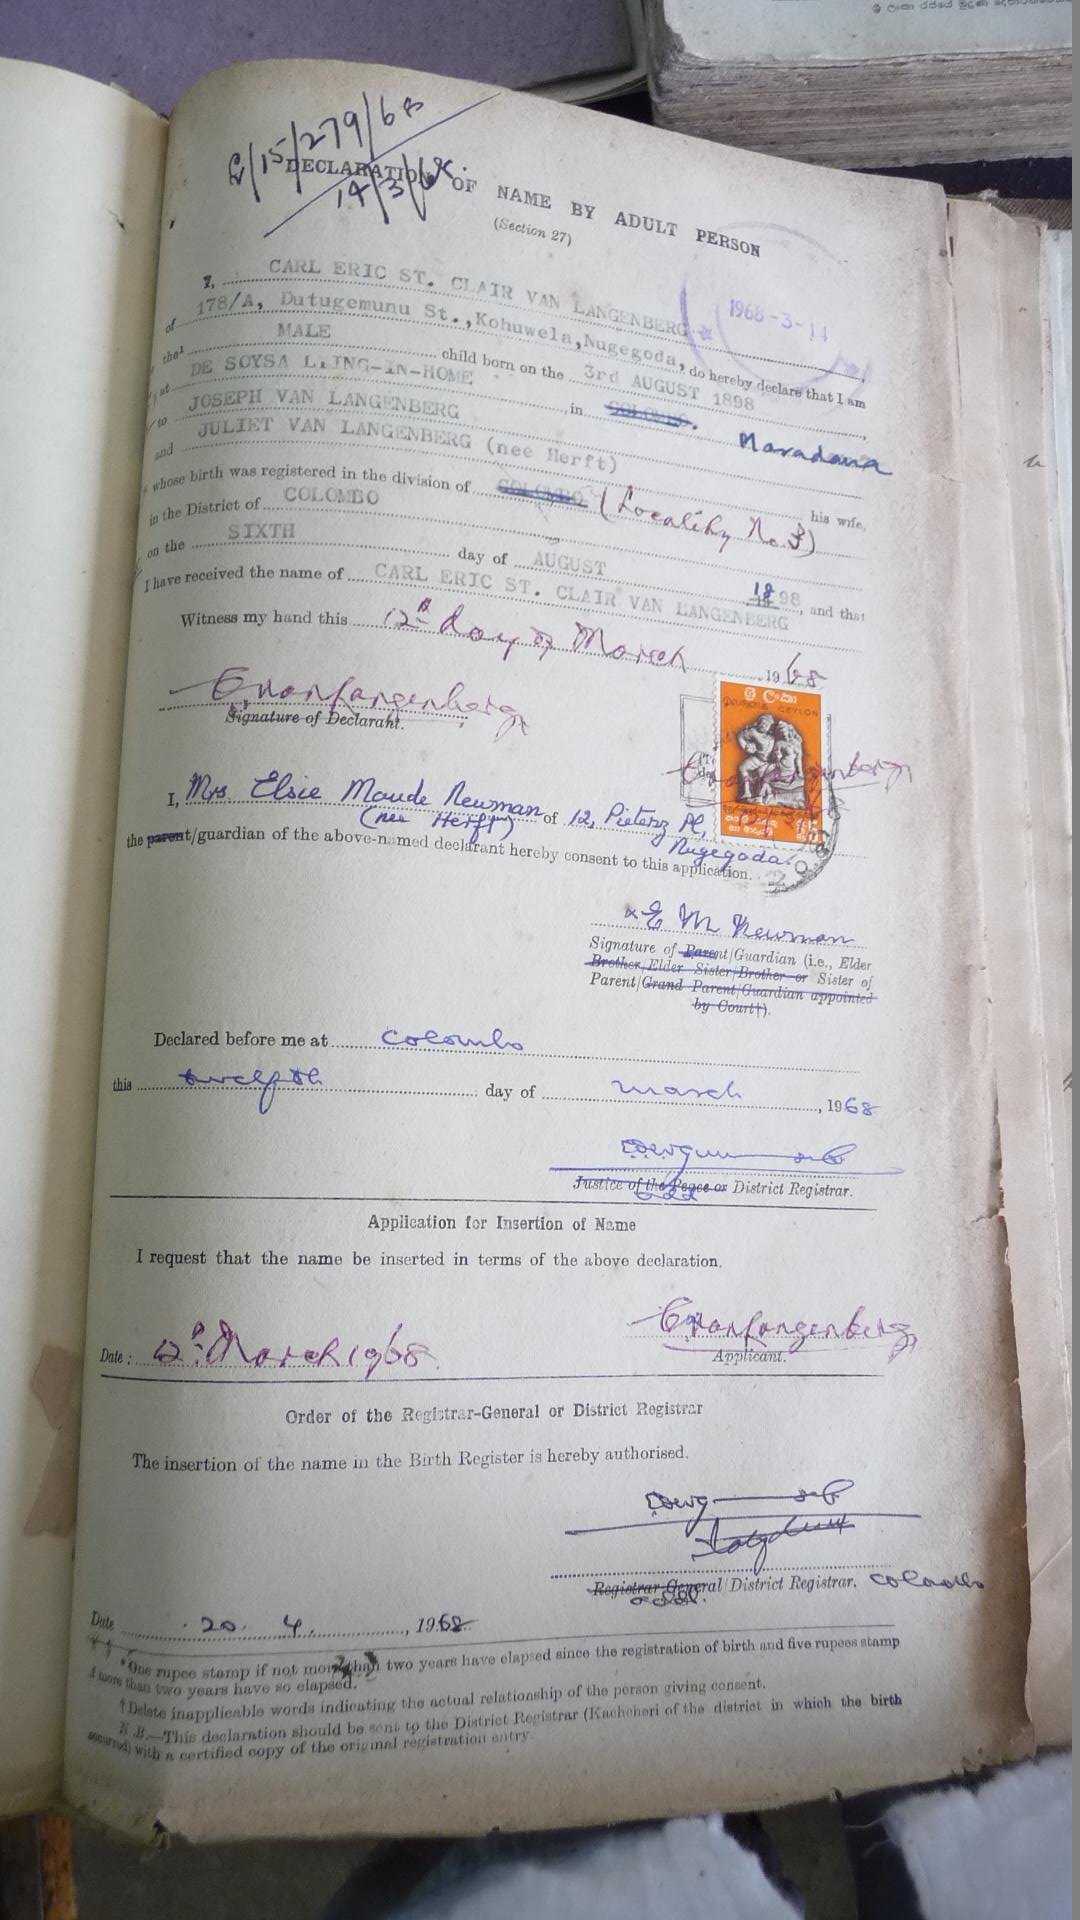 ශ්‍රී ලංකා රජයේ මුද්‍රණ
/15/279/68
14/3/68.
DECLARATION OF NAME BY ADULT PERSON
(Section 27)
1968-3-11
I, CARL ERIC ST. CLAIR VAN LANGENBERG
of 178/A, Dutugemunu St., Kohuwela, Nugegoda, do hereby declare that I am
the¹ MALE child born on the 3rd AUGUST 1898
at DE SOYSA LYING-IN-HOME in COLOMBO. Maradana
to JOSEPH VAN LANGENBERG
and JULIET VAN LANGENBERG (nee Herft) his wife,
whose birth was registered in the division of COLOMBO (Locality No. 3)
in the District of COLOMBO
on the SIXTH day of AUGUST 1898, and that
I have received the name of CARL ERIC ST. CLAIR VAN LANGENBERG
Witness my hand this 12th day of March 1968
EvanLangenberg
Signature of Declarant.
ශ්‍රී ලංකා
CEYLON
I, Mrs Elsie Maude Newman (nee Herft) of 12, Pietersz Pl, Nugegoda.
the parent/guardian of the above-named declarant hereby consent to this application.
x E M Newman
Signature of Parent/Guardian (i.e., Elder
Brother/Elder Sister/Brother or Sister of
Parent/Grand Parent/Guardian appointed
by Court†).
Declared before me at Colombo
this twelfth day of march, 1968
Justice of the Peace or District Registrar.
Add
Application for Insertion of Name
I request that the name be inserted in terms of the above declaration.
EvanLangenberg
Date: 12th March 1968. Applicant.
Order of the Registrar-General or District Registrar
The insertion of the name in the Birth Register is hereby authorised.
Registrar-General/District Registrar. Colombo
addl.
Date 20. 4., 1968
*One rupee stamp if not more than two years have elapsed since the registration of birth and five rupees stamp
if more than two years have so elapsed.
†Delete inapplicable words indicating the actual relationship of the person giving consent.
N.B.—This declaration should be sent to the District Registrar (Kachcheri of the district in which the birth
occurred) with a certified copy of the original registration entry.